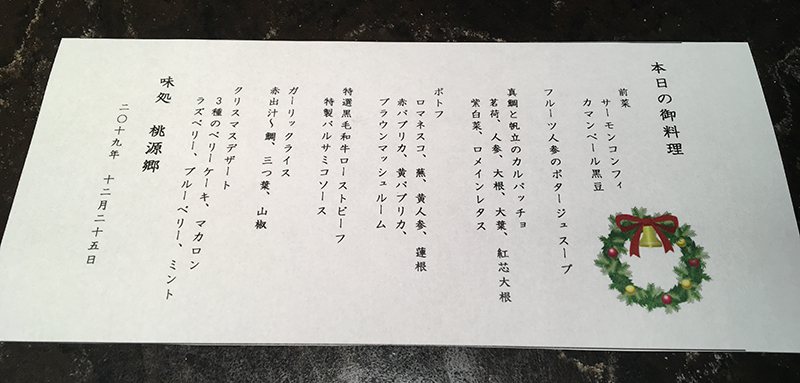 本日の御料理
前菜
サーモンコンフィ
カマンベール黒豆
フルーツ人参のポタージュスープ
真鯛と帆立のカルパッチョ
茗荷、人参、大根、大葉、紅芯大根
紫白菜、ロメインレタス
ポトフ
ロマネスコ、蕪、黄人参、蓮根
赤パプリカ、黄パプリカ、
ブラウンマッシュルーム
特選黒毛和牛ローストビーフ
特製バルサミコソース
ガーリックライス
赤出汁〜鯛、三つ葉、山椒
クリスマスデザート
3種のベリーケーキ、マカロン
ラズベリー、ブルーベリー、ミント
味処 桃源郷
二〇十九年 十二月二十五日